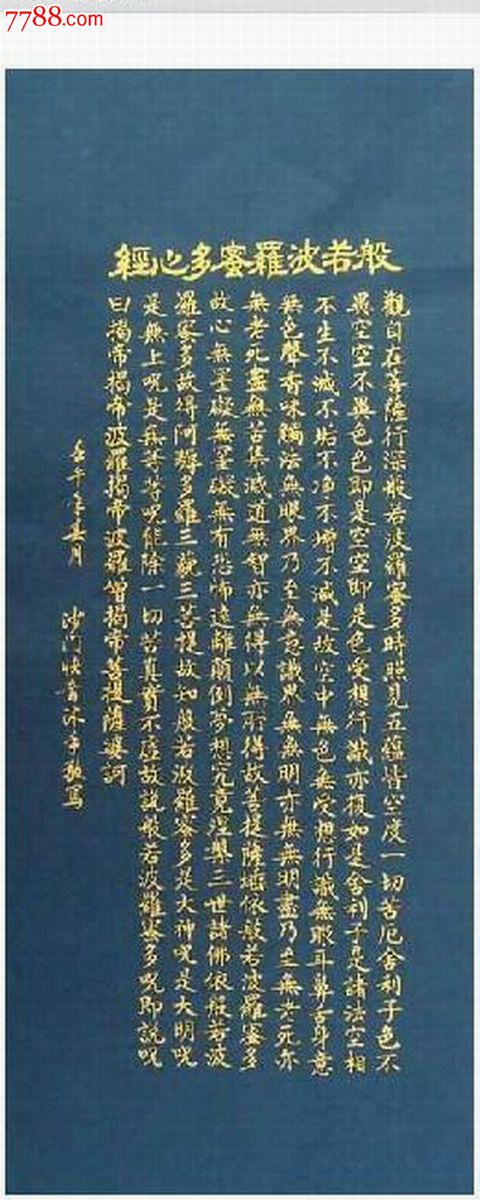 7788.com
般若波羅蜜多心經
觀自在菩薩行深般若波羅蜜多時照見五蘊皆空度一切苦厄舍利子色不
異空空不異色色即是空空即是色受想行識亦復如是舍利子是諸法空相
不生不滅不垢不净不增不減是故空中無色無受想行識無眼耳鼻舌身意
無色聲香味觸法無眼界乃至無意識界無無明亦無無明盡乃至無老死亦
無老死盡無苦集滅道無智亦無得以無所得故菩提薩埵依般若波羅蜜多
故心無罣礙無罣礙無有恐怖遠離顛倒夢想究竟涅槃三世諸佛依般若波
羅蜜多故得阿耨多羅三藐三菩提故知般若波羅蜜多是大神呪是大明呪
是無上呪是無等等呪能除一切苦真實不虛故說般若波羅蜜多呪即說呪
曰揭帝揭帝波羅揭帝波羅僧揭帝菩提薩婆訶
壬午年春月 沙门沐手敬寫